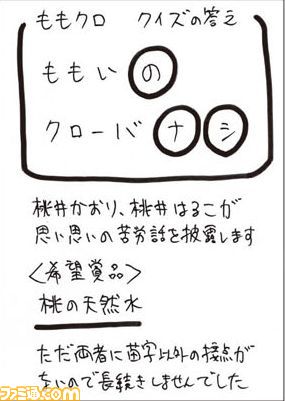 ももクロ クイズの答え
ももいの
クローバナシ
桃井かおり、桃井はるこが
思い思いの苦労話を披露します
〈希望賞品〉
桃の天然水
ただ両者に苗字以外の接点が
ないので長続きしませんでした
ファミ通.com